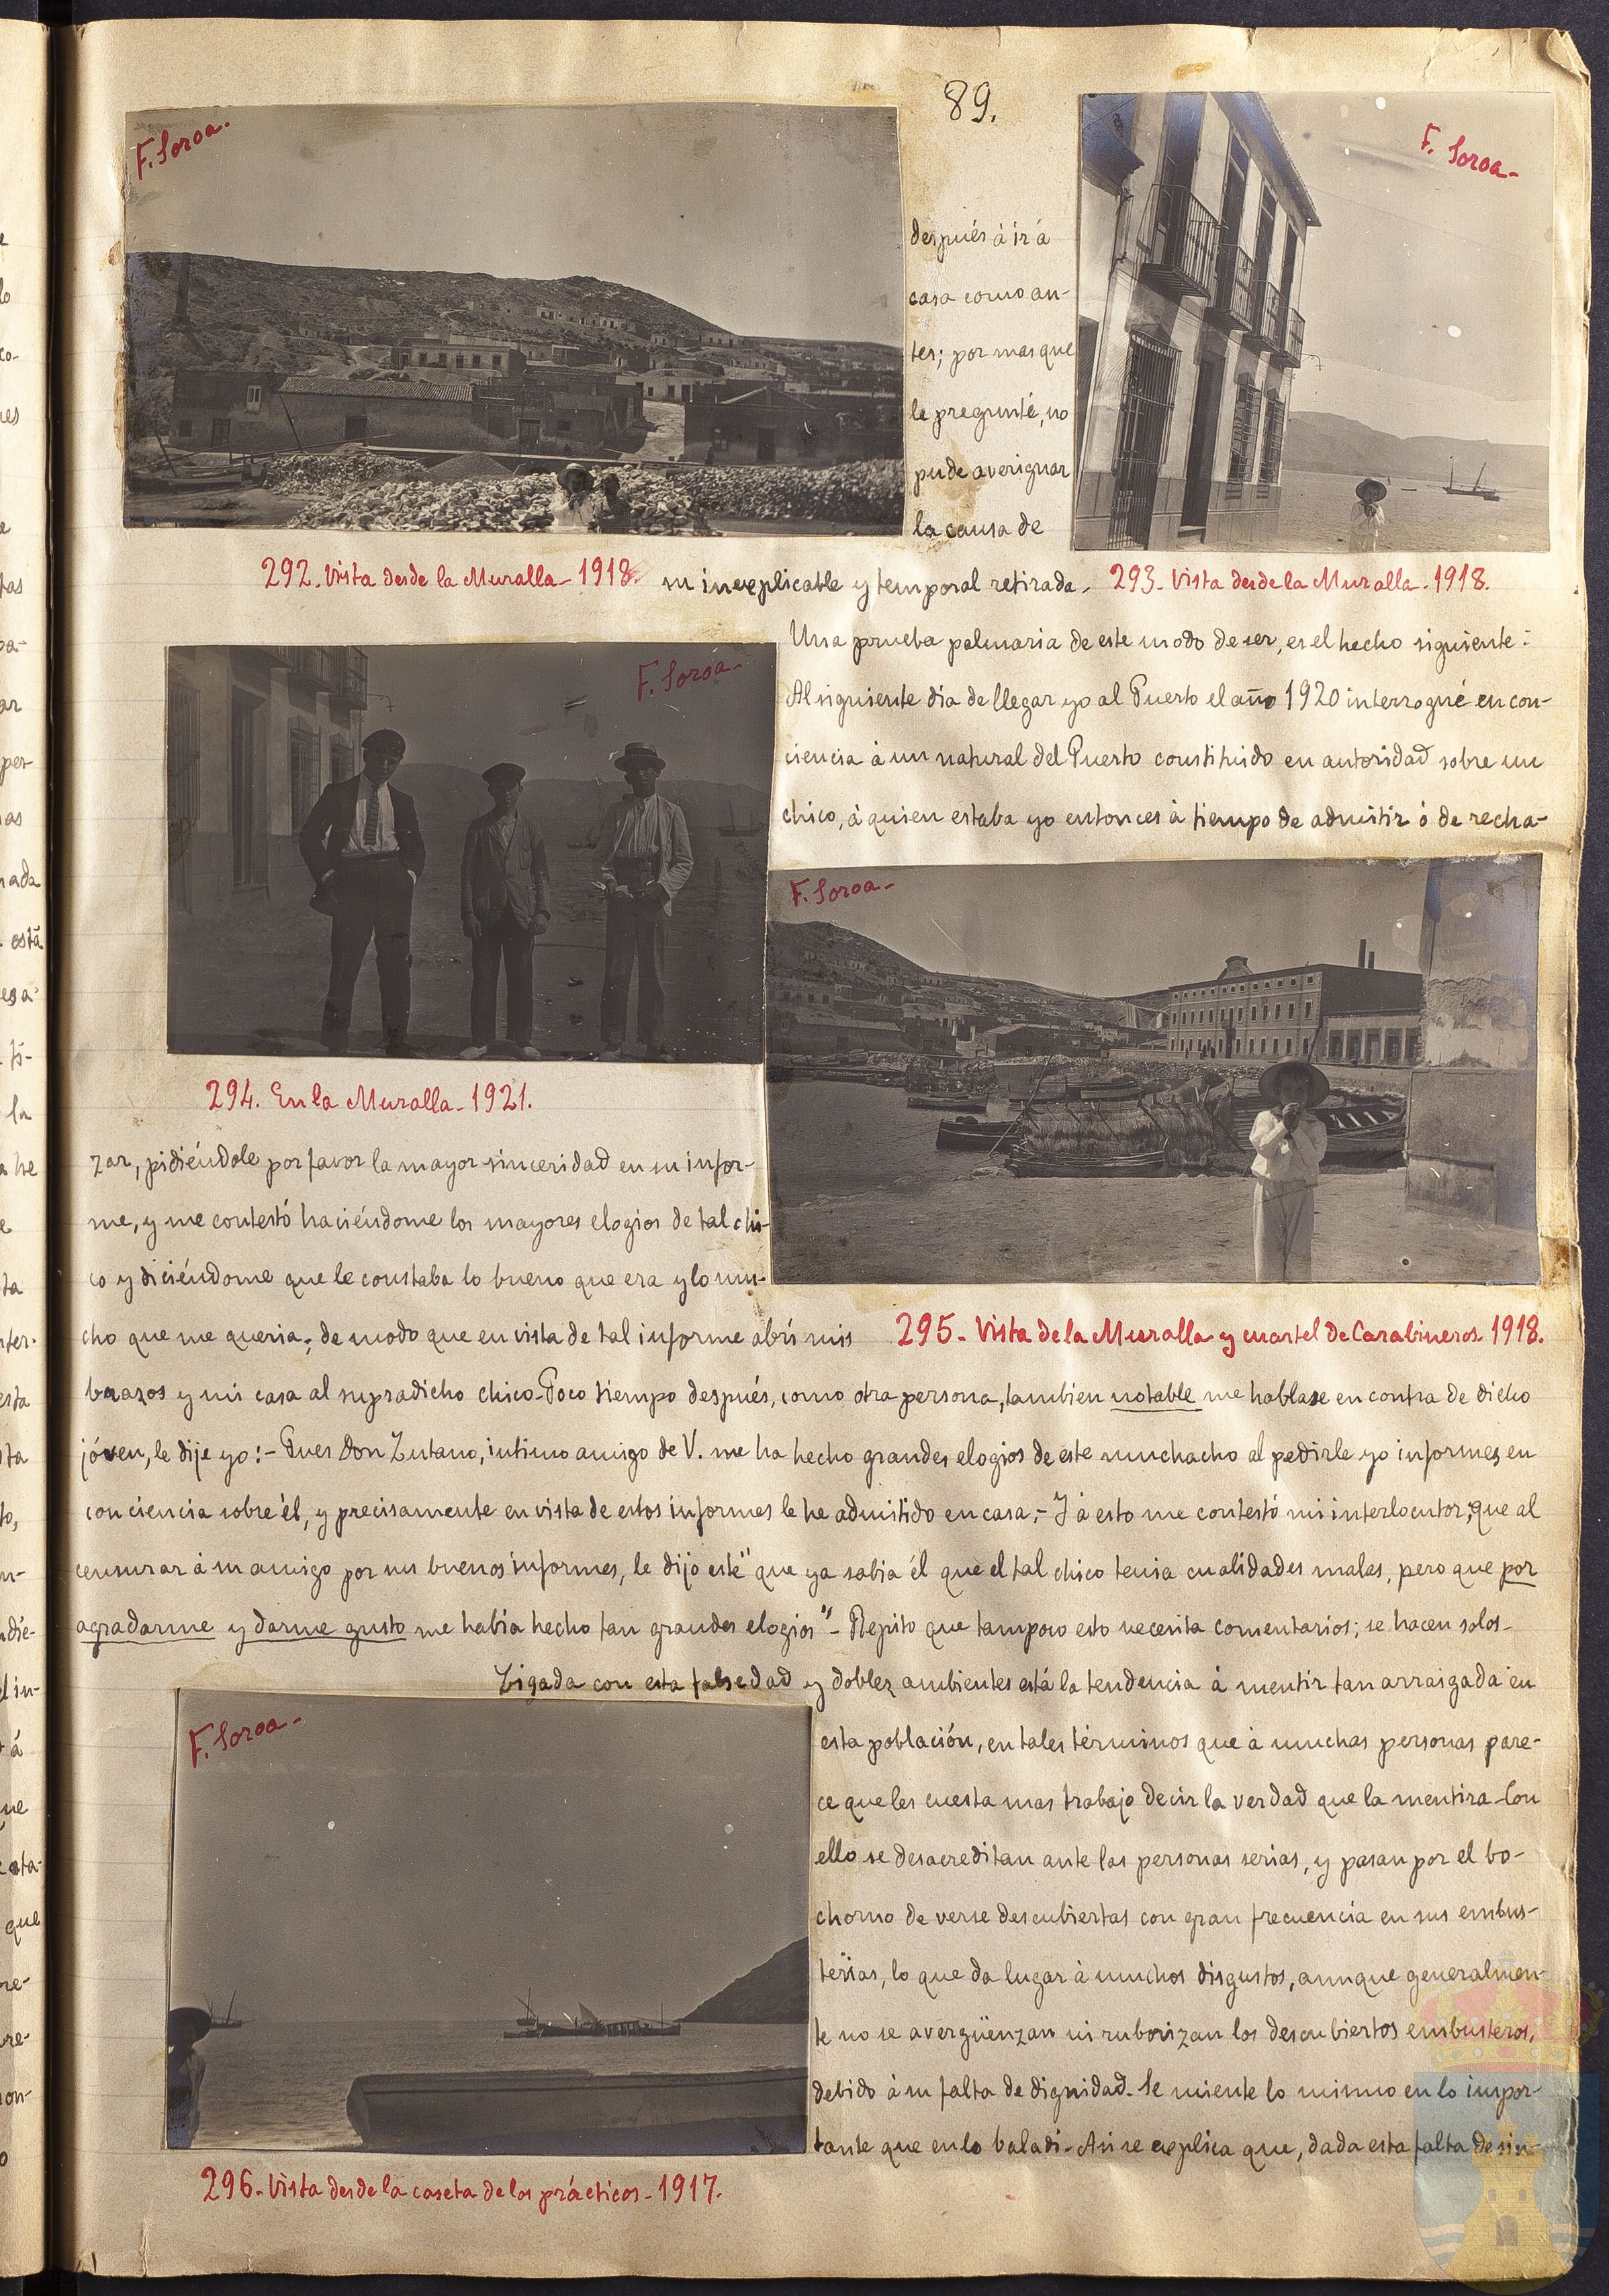 89.
F. Soroa.
F. Soroa-
después à ir á
casa como an-
tes; por mas que
le pregunté, no
pude averiguar
la causa de
292. Vista desde la Muralla - 1918.
su inexplicable y temporal retirada.
293. Vista desde la Muralla - 1918.
Una prueba palmaria de este modo de ser, es el hecho siguiente:
Al siguiente dia de llegar yo al Puerto el año 1920 interrogué en con-
ciencia à un natural del Puerto constituido en autoridad sobre un
chico, à quien estaba yo entonces à tiempo de admitir ó de recha-
F. Soroa-
F. Soroa-
294. En la Muralla - 1921.
zar, pidiéndole por favor la mayor sinceridad en su infor-
me, y me contestó haciéndome los mayores elogios de tal chi-
co y diciéndome que le constaba lo bueno que era y lo mu-
cho que me queria; de modo que en vista de tal informe abrí mis
295 - Vista de la Muralla y cuartel de Carabineros - 1918.
brazos y mi casa al supradicho chico - Poco tiempo después, como otra persona, tambien notable me hablase en contra de dicho
jóven, le dije yo: - Pues Don Zutano, intimo amigo de V. me ha hecho grandes elogios de este muchacho al pedirle yo informes en
conciencia sobre él, y precisamente en vista de estos informes le he admitido en casa. - Y à esto me contestó mi interlocutor, que al
censurar à su amigo por sus buenos informes, le dijo esté "que ya sabia él que el tal chico tenia cualidades malas, pero que por
agradarme y darme gusto me habia hecho tan grandes elogios" - Repito que tampoco esto necesita comentarios; se hacen solos -
Ligada con esta falsedad y doblez ambientes está la tendencia à mentir tan arraigada en
F. Soroa-
esta población, en tales términos que à muchas personas pare-
ce que les cuesta mas trabajo decir la verdad que la mentira - Con
ello se desacreditan ante las personas serias, y pasan por el bo-
chorno de verse descubiertas con gran frecuencia en sus embus-
terias, lo que da lugar à muchos disgustos, aunque generalmen-
te no se avergüenzan ni ruborizan los descubiertos embusteros,
debido à su falta de dignidad. Se miente lo mismo en lo impor-
tante que en lo baladi - Asi se explica que, dada esta falta de sin-
296 - Vista desde la caseta de los prácticos - 1917.